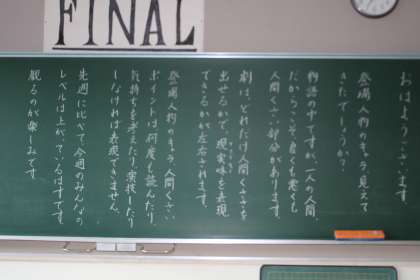 FINAL
おはようございます。
登場人物のキャラ、見えて
きたでしょうか？
物語の中ですが、一人の人間
だからこそ良くも悪くも
人間くさい部分があります。
劇は、どれだけ人間くささを
出せるかで、現実味を表現
できるかが左右されます。
登場人物のキャラ、人間くさい
ポイントは何度も読んだり、
気持ちを考えたり、演技したり
しなければ表現できません。
先週に比べて今週のみんなの
レベルは上がっているはずです。
観るのが楽しみです。